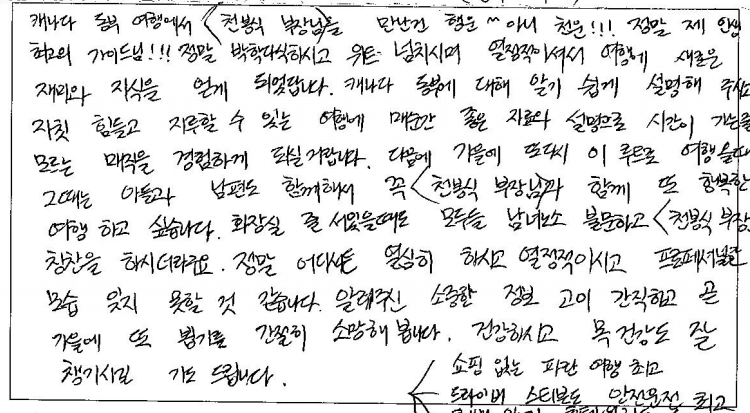 캐나다 동부 여행에서 <천봉식 부장님>을 만난건 행운~ 아니 천운!!! 정말 제 인생
최고의 가이드님!!! 정말 박학다식하시고 위트 넘치시며 열정적이셔서 여행에 새로운
재미와 지식을 얻게 되었답니다. 캐나다 동부에 대해 알기 쉽게 설명해 주시고
자칫 힘들고 지루할 수 있는 여행에 매순간 좋은 자료와 설명으로 시간이 가는줄
모르는 매직을 경험하게 되실거랍니다. 다음에 가을에 또다시 이 루트로 여행올때
그때는 아들과 남편도 함께해서 꼭 <천봉식 부장님>과 함께 또 행복한
여행 하고 싶습니다. 화장실 줄 서있을때도 모두들 남녀노소 불문하고 <천봉식 부장
칭찬을 하시더라구요. 정말 어디서든 열심히 하시고 열정적이시고 프로페셔널한
모습 잊지 못할 것 같습니다. 알려주신 소중한 정보 고이 간직하고 곧
가을에 또 뵙기를 간절히 소망해 봅니다. 건강하시고 목 건강도 잘
챙기시길 기도 드립니다.
쇼핑 없는 파란 여행 최고
드라이버 스티븐도 안전운전 최고